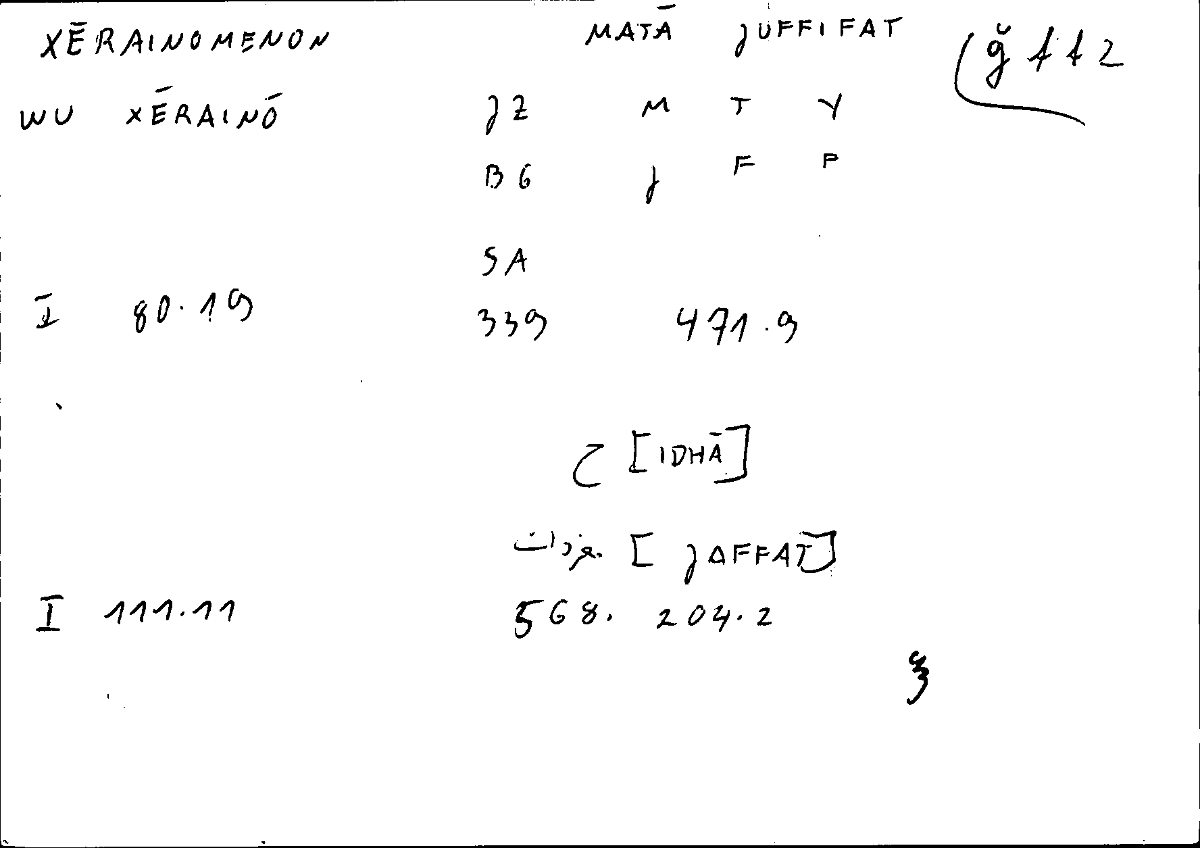 XĒRAINOMENON MATĀ JUFFIFAT ǧff2
WU XĒRAINŌ JZ M T Y
BG J F P
SA
I 80.19 339 471.9
ح [IDHĀ]
[JAFFAT]
I 111.11 568. 204.2
ξ